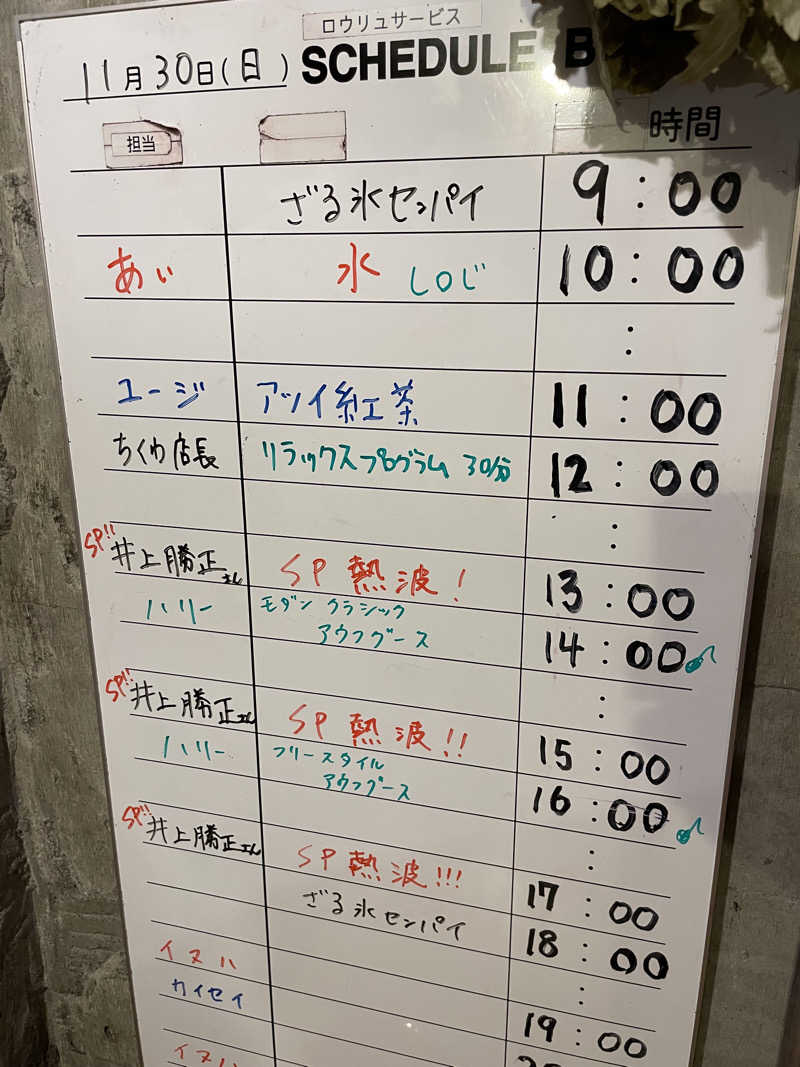 ロウリュサービス
11月30日(日) SCHEDULE B
担当 時間
ざる氷センパイ 9:00
あい 氷 しロじ 10:00
:
ユージ アツイ紅茶 11:00
ちくわ店長 リラックスプログラム 30分 12:00
:
SP!! 井上勝正さん SP 熱波! 13:00
ハリー モダン クラシック
アウフグース 14:00
:
SP!! 井上勝正さん SP 熱波!! 15:00
ハリー フリースタイル
アウフグース 16:00
:
SP!! 井上勝正さん SP 熱波!!! 17:00
ざる氷センパイ 18:00
:
イヌハ
カイセイ 19:00
イヌハ